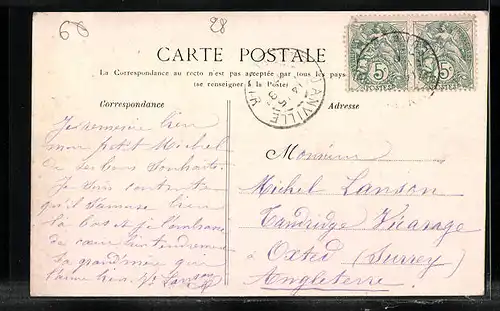 60
28
CARTE POSTALE
La Correspondance au recto n'est pas acceptée par tous les pays
(se renseigner à la Poste)
Correspondance
Adresse
5
POSTES
5
POSTES
Je remercie bien
mon petit Michel
de ses bons souhaits.
Je suis contente
qu'il s'amuse bien
là bas et je l'embrasse
de cœur tendrement
Sa grand'mère qui
l'aime bien. Lanson
Monsieur
Michel Lanson
Tandridge Vicarage
à Oxted (Surrey)
Angleterre